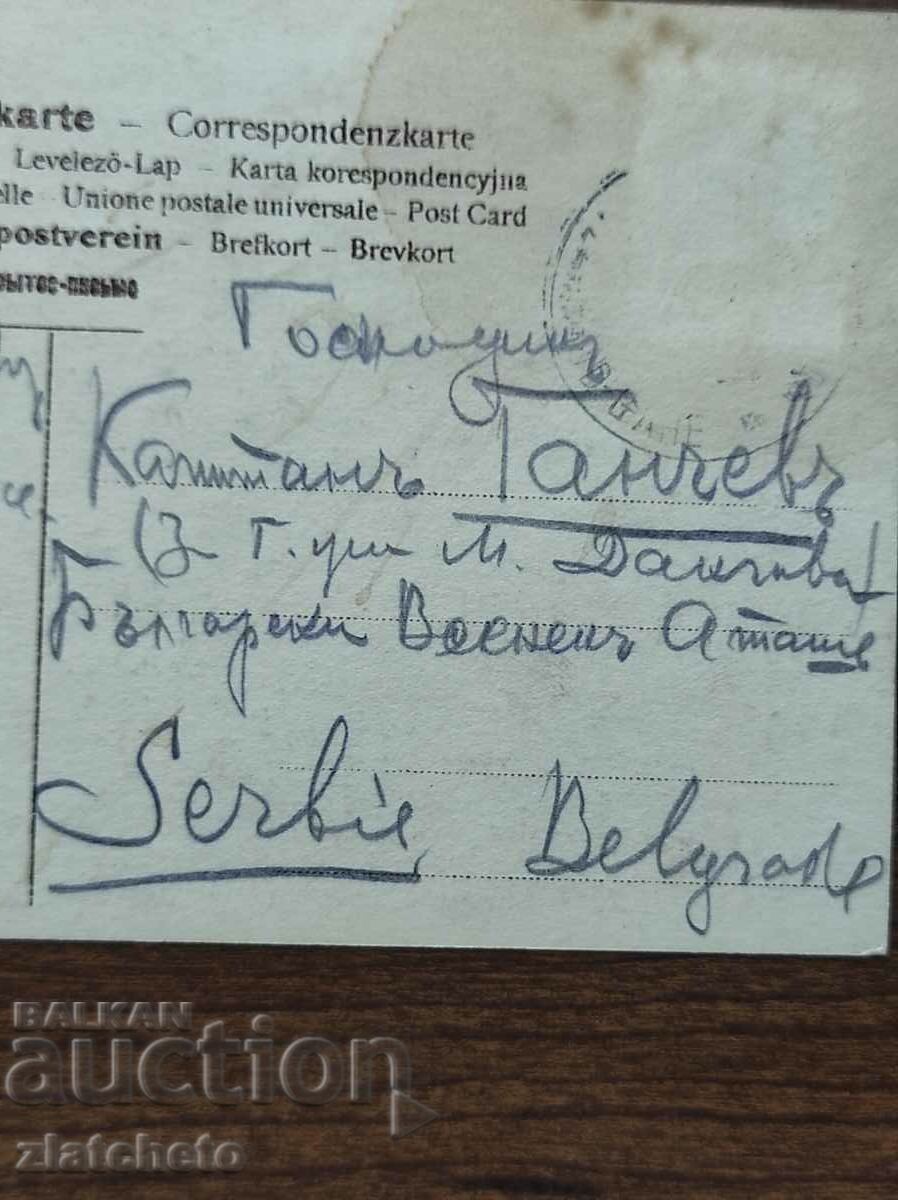 karte – Correspondenzkarte
Levelező-Lap – Karta korespondencyjna
elle Unione postale universale – Post Card
postverein – Brefkort – Brevkort
Господинъ
Капитанъ Ганчевъ
(За Г. ци М. Данчова)
Български Воененъ Аташе
Serbie Belgrade
BALKAN
auction
zlatcheto